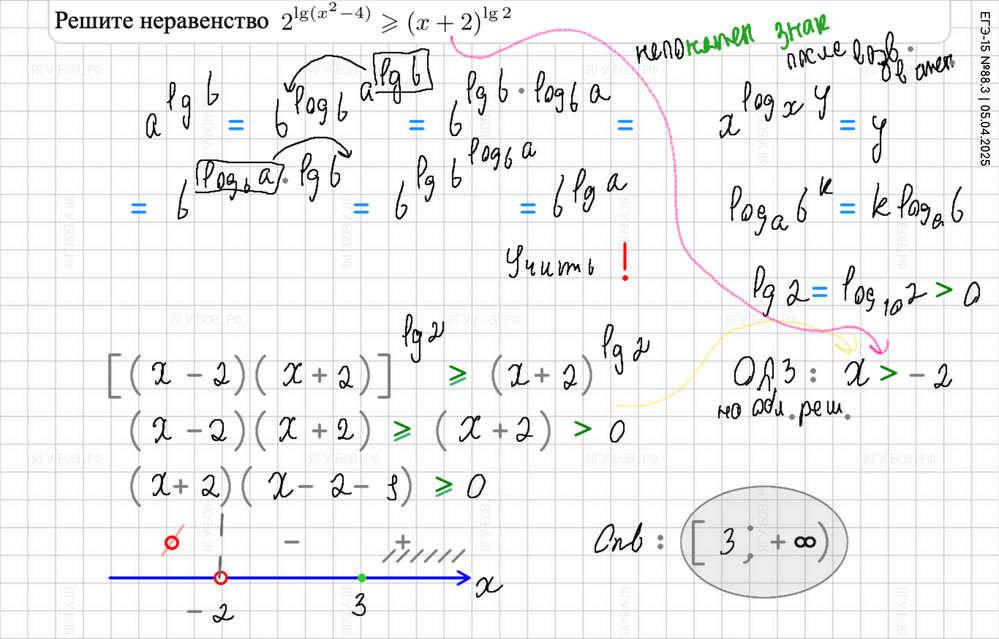 Решите неравенство 2^{lg(x²−4)} ⩾ (x + 2)^{lg 2}
непонятен знак
после возв.
в степ.
a^{lg b} = b^{log_b a^{lg b}} = b^{lg b · log_b a} =
= b^{log_b a · lg b} = b^{lg b^{log_b a}} = b^{lg a}
Учить !
x^{log_x y} = y
log_a b^k = k log_a b
lg 2 = log_{10} 2 > 0
[(x − 2)(x + 2)]^{lg 2} ⩾ (x + 2)^{lg 2}
(x − 2)(x + 2) ⩾ (x + 2) > 0
(x + 2)(x − 2 − 1) ⩾ 0
ОДЗ: x > −2
но обл. реш.
− +
−2 3 x
Отв: [3; +∞)
ЕГЭ-15 №88.3 | 05.04.2025
ЯГУБОВ.РФ